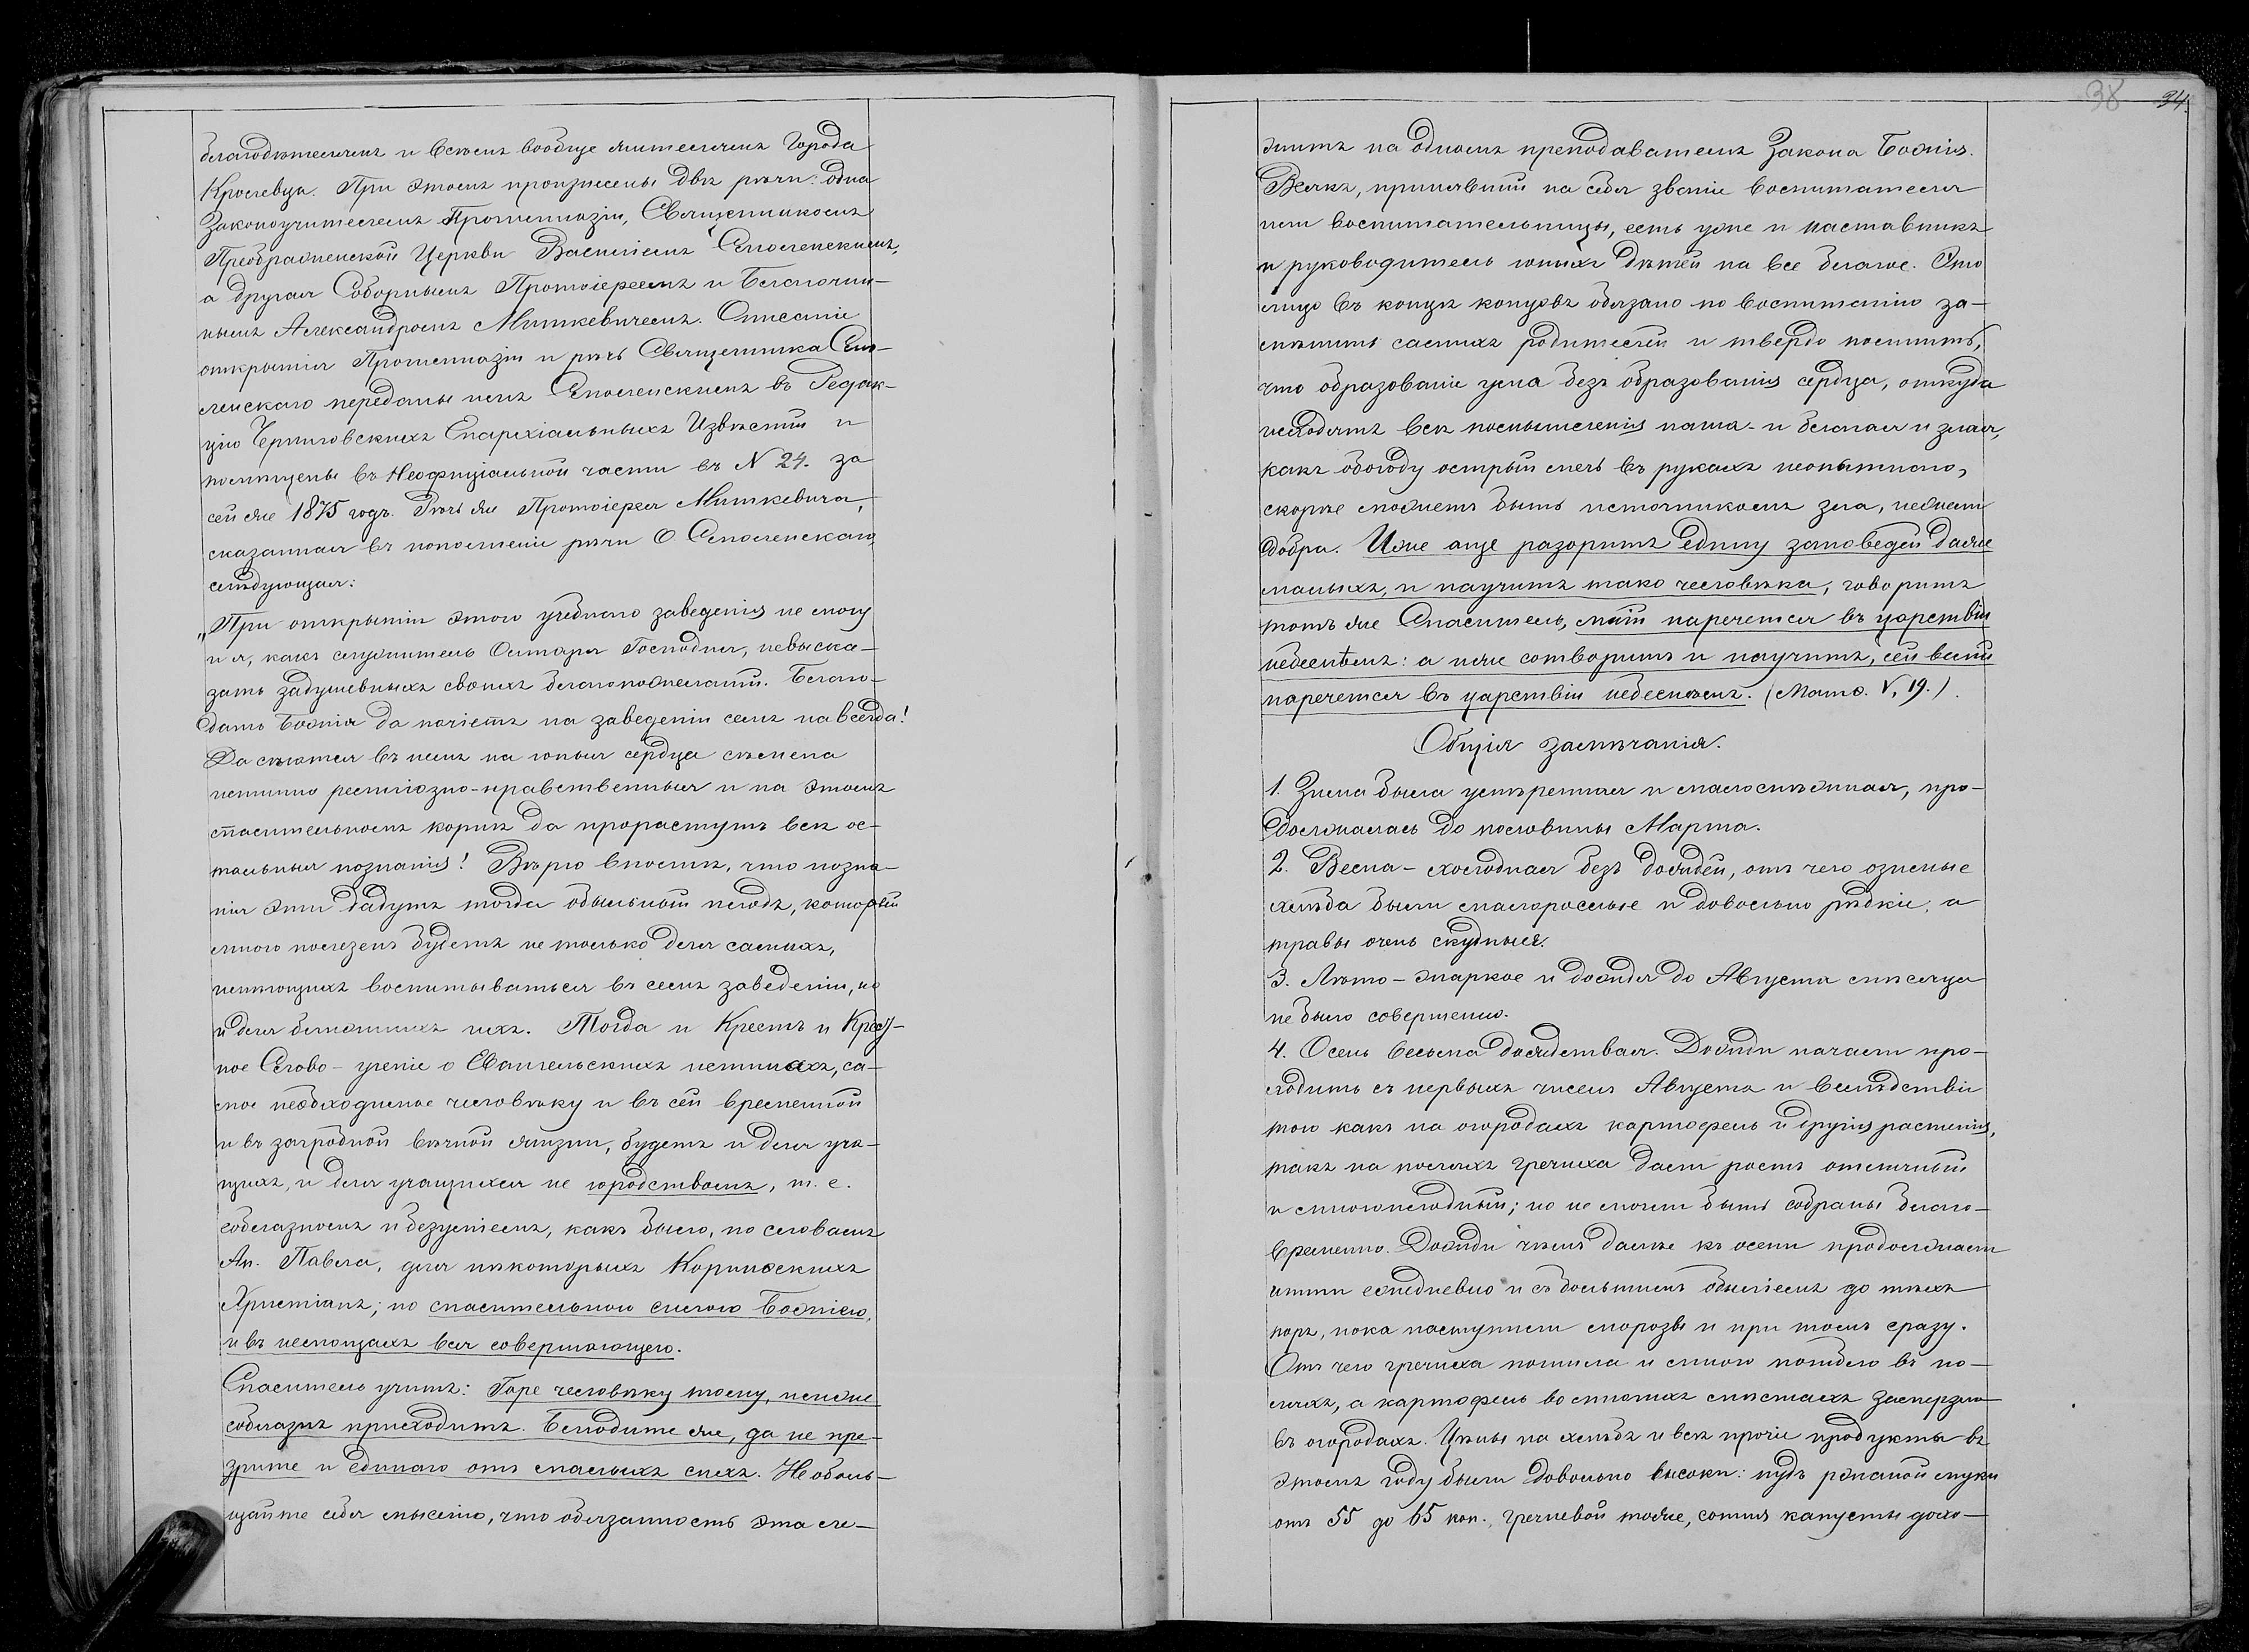 благодѣтелямъ и всѣмъ вообще жителямъ города
Кролевца. При этомъ произнесены двѣ рѣчи: одна
Законоучителемъ Прогимназіи, Священникомъ
Преображенской Церкви Василіемъ Смоленскимъ,
а другая Соборнымъ Протоіереемъ и Благочин-
нымъ Александромъ Миткевичемъ. Описаніе
открытія Прогимназіи и рѣчь Священника Смо-
ленскаго переданы имъ Смоленскимъ въ Редак-
цію Черниговскихъ Епархіальныхъ Извѣстій и
помѣщены въ Неофиціальной части въ N 24. за
сей же 1875 годъ. Рѣчь же Протоіерея Миткевича,
сказанная въ пополненіе рѣчи О Смоленскаго,
слѣдующая:
„При открытіи этого учебнаго заведенія не могу
и я, какъ служитель Олтаря Господня, невыска-
зать задушевныхъ своихъ благопожеланій. Благо-
дать Божія да почіетъ на заведеніи семъ на всегда!
Да сѣются въ немъ на юныя сердца сѣмена
истинно религіозно-нравственныя и на этомъ
спасительномъ корнѣ да прорастутъ всѣ ос-
тальныя познанія! Вѣрю вполнѣ, что позна-
нія эти дадутъ тогда обильный плодъ, который
много полезенъ будетъ не только для самихъ,
имѣющихъ воспитываться въ семъ заведеніи, но
и для ближнихъ ихъ. Тогда и Крестъ и Крест-
ное Слово - ученіе о Евангельскихъ истинахъ, са-
мое необходимое человѣку и въ сей временной
и въ загробной вѣчной жизни, будетъ и для уча-
щихъ, и для учащихся не юродствомъ, т. е.
соблазномъ и безуміемъ, какъ было, по словамъ
Ап. Павла, для нѣкоторыхъ Коринѳскихъ
Христіанъ; но спасительною силою Божіею,
и въ немощахъ вся совершающею.
Спаситель учитъ: Горе человѣку тому, имже
соблазнъ приходитъ. Блюдите же, да не пре-
зрите и единаго отъ малыхъ сихъ. Не оболь-
щайте себя мыслію, что обязанность эта ле-
38 34.
житъ на одномъ преподавателѣ Закона Божія.
Всякъ, принявшій на себя званіе воспитателя
или воспитательницы, есть уже и наставникъ
и руководитель юныхъ дѣтей на все благое. Это
лицо въ концѣ концовъ обязано по воспитанію за-
мѣнить самихъ родителей и твердо помнить,
что образованіе ума безъ образованія сердца, откуда
исходятъ вся помышленія наша - и благая и злая,
какъ обоюду острый мечъ въ рукахъ неопытнаго,
скорѣе можетъ быть источникомъ зла, нежели
добра. Иже аще разоритъ едину заповедей даже
малыхъ, и научитъ тако человѣка, говоритъ
тотъ же Спаситель, мній наречется въ царствіи
небеснѣмъ: а иже сотворитъ и научитъ, сей велій
наречется въ царствіи небеснѣмъ. (Матѳ. V, 19.).
Общія замѣчанія.
1. Зима была умѣренная и малоснѣжная, про-
должалась до половины Марта.
2. Весна - холодная безъ дождей, отъ чего озимые
хлѣба были малорослые и довольно рѣдкіе, а
травы очень скудныя.
3. Лѣто - жаркое и дождя до Августа мѣсяца
не было совершенно.
4. Осень весьма дождливая. Дожди начали про-
ходить съ первыхъ чиселъ Августа и вслѣдствіи
того какъ на огородахъ картофель и другія растенія,
такъ на поляхъ гречиха дали ростъ отличный
и многоплодный; но не могли быть собраны благо-
временно. Дожди чѣмъ далѣе къ осени продолжали
итти ежедневно и съ большимъ обиліемъ до тѣхъ
поръ, пока наступили морозы и при томъ сразу.
Отъ чего гречиха погнила и много погибло въ по-
ляхъ, а картофель во многихъ мѣстахъ замерзло
въ огородахъ. Цѣны на хлѣбъ и всѣ прочіе продукты въ
этомъ году были довольно высоки: пудъ ржаной муки
отъ 55 до 65 коп., гречневой тоже, сотня капусты дохо-